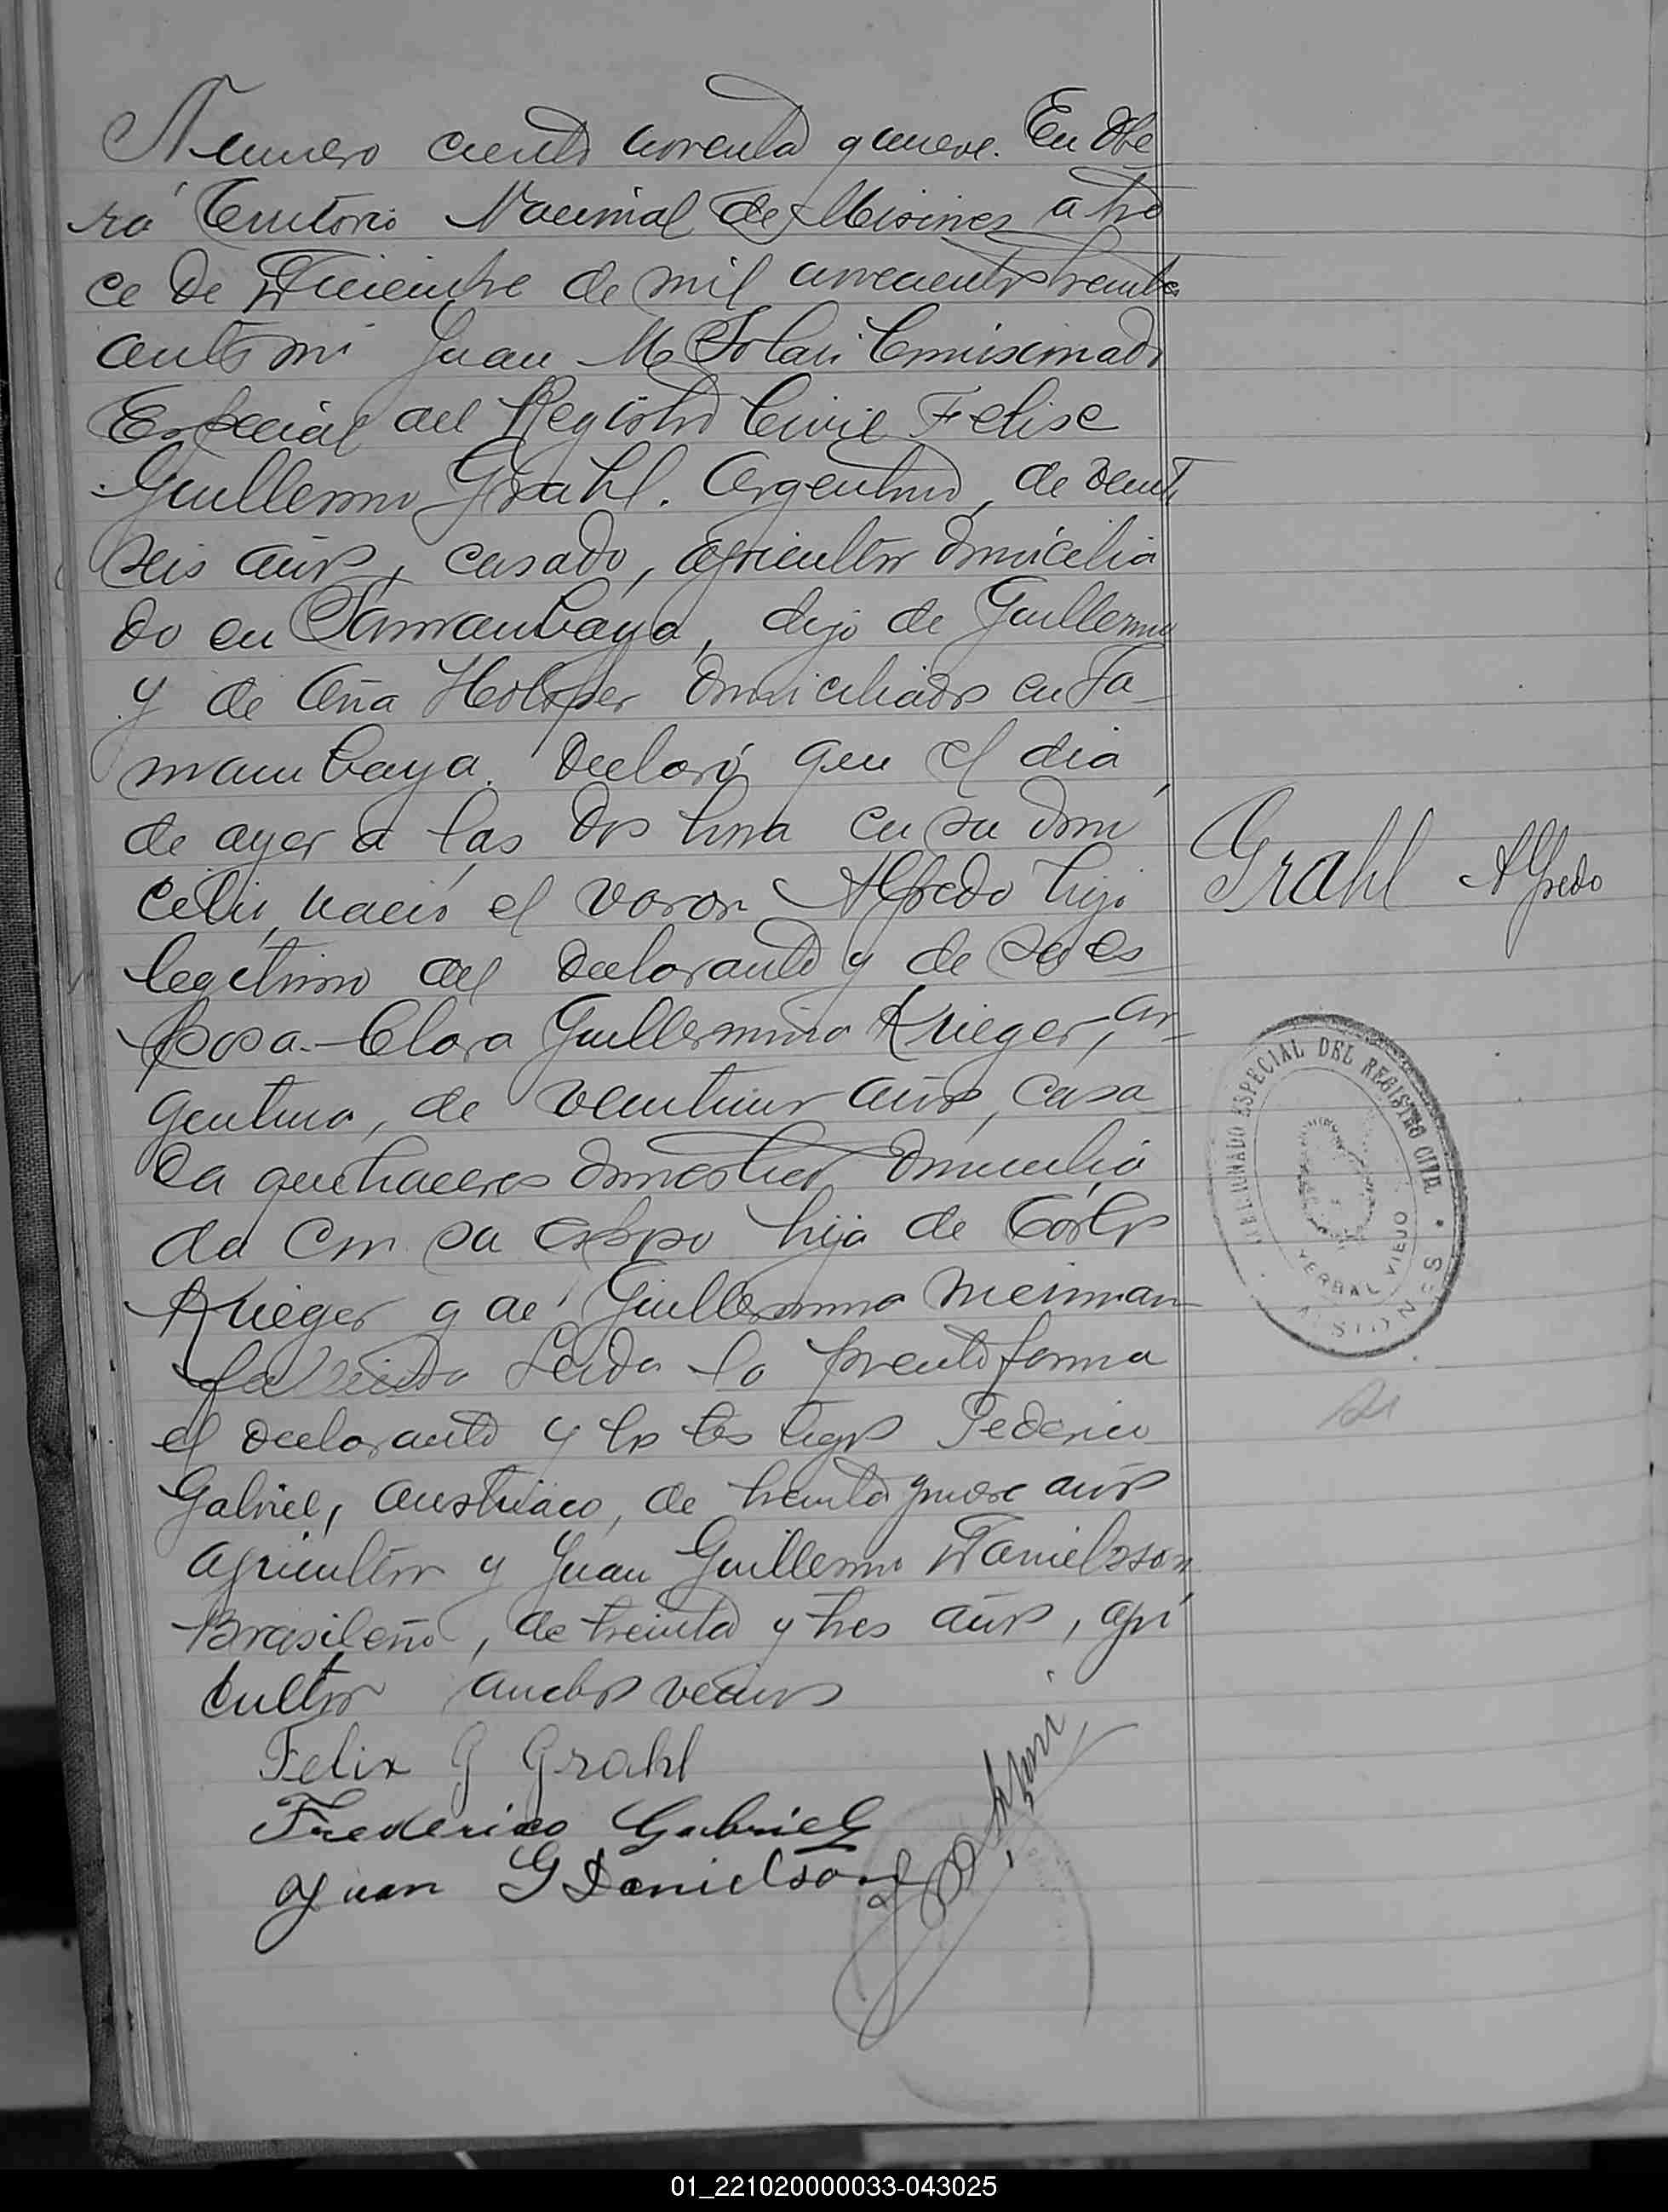 Numero ciento noventa y nueve. En Obe
rá Territorio Nacional de Misiones a tre
ce de Diciembre de mil novecientos treinta
ante mi Juan M Solari Comisionado
Especial del Registro Civil Felise
Guillermo Grahl. Argentino, de veinti
seis años, casado, agricultor domicilia
do en Samambaya, dijo de Guillermo
y de Ana Holtzer domiciliados en Sa
mambaya. Declaró que el dia
de ayer a las dos hora en su domi
cilio, nació el varon Alfredo hijo
legitimo del declarante y de su es
posa Clara Guillermina Krieger, ar
gentina, de veintiun años, casa
da quehaceres domesticos domicilia
da con su esposo hija de Carlos
Krieger y de Guillermina
Leida la presente forma
el declarante y los testigos Federico
Gabriel, austriaco, de treinta y nueve años
agricultor y Juan Guillermo Danielsson,
Brasileño, de treinta y tres años, agri
cultor ambos vecinos
Felix G Grahl
Frederico Gabriel
Juan G Danielson
Grahl Alfredo
COMISIONADO ESPECIAL DEL REGISTRO CIVIL
YERBAL VIEJO
MISIONES
01_221020000033-043025